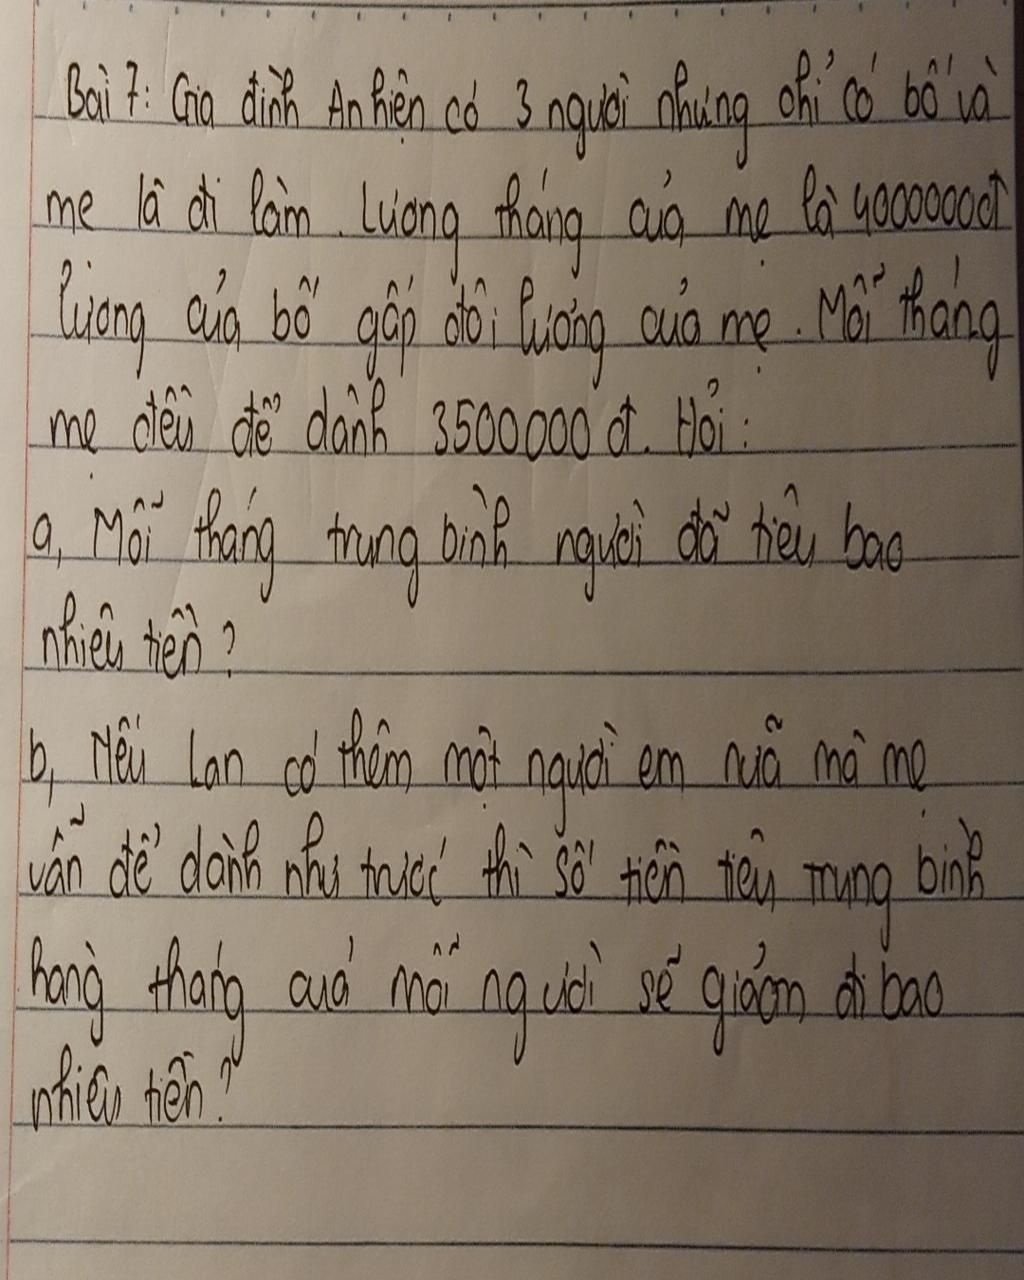 Bài 7: Gia đình An hiện có 3 người nhưng chỉ có bố và
mẹ là đi làm. Lương tháng của mẹ là 4000000đ
lương của bố gấp đôi lương của mẹ. Mỗi tháng
mẹ đều để dành 3500000 đ. Hỏi:
a, Mỗi tháng trung bình người đã tiêu bao
nhiêu tiền?
b, Nếu Lan có thêm một người em nữa mà mẹ
vẫn để dành như trước thì số tiền tiêu trung bình
hàng tháng của mỗi người sẽ giảm đi bao
nhiêu tiền?